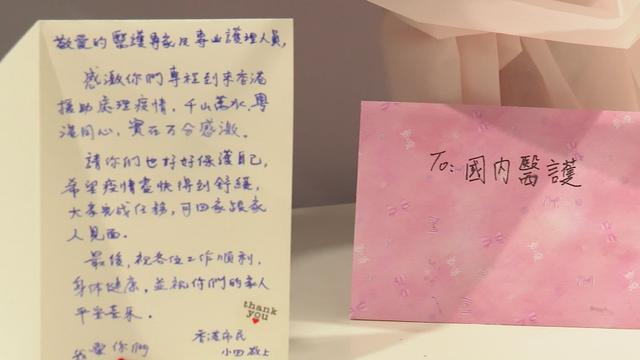 敬愛的醫護專家及專業護理人員,
感激你們專程到來香港
援助處理疫情,千山萬水,粵
港同心,實在万分感激。
請你們也好好保護自己,
希望疫情盡快得到舒緩,
大家完成任務,可回家與家
人見面。
最後,祝各位工作順利,
身体健康,並祝你們的家人
平安喜樂。
thank
you
香港市民
小四敬上
我愛你們
To: 國內醫護